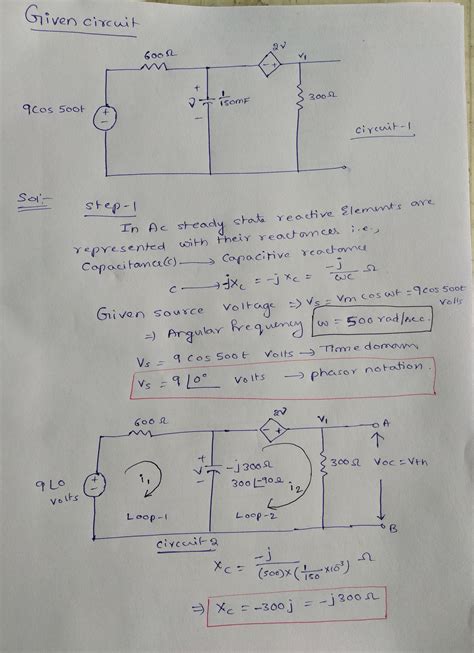 Given circuit
600Ω
2V
V1
+
V
-
1/150mF
300Ω
9cos 500t
circuit-1
Sol:-
step-1
In Ac steady state reactive Elements are
represented with their reactances i.e.,
Capacitance(c) → Capacitive reactance
c → -jXc = -jXc = -j/ωc Ω
Given source voltage ⇒ Vs = Vm cos ωt = 9cos 500t
volts
⇒ Angular frequency ω = 500 rad/sec.
Vs = 9 cos 500t volts → Time domain
Vs = 9∠0° volts → phasor notation.
600Ω
2V
V1
A
9∠0
volts
i1
+
V
-
-j300Ω
300∠-90Ω
i2
300Ω
Voc = Vth
Loop-1
Loop-2
B
circuit 2
Xc = -j/(500)×(1/150 ×10³) Ω
⇒ Xc = -300j = -j300Ω